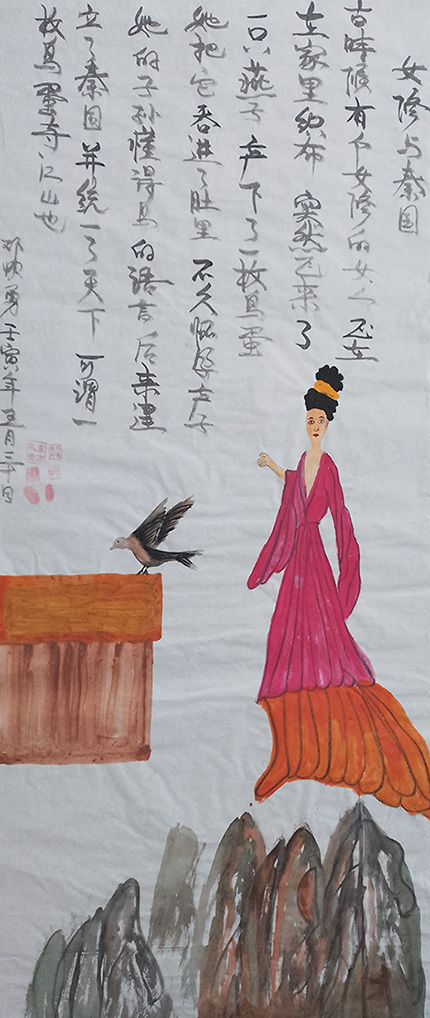 女修与秦国
古时候有个女修的女人 正在
在家里织布 突然飞来了
一只燕子 产下了一枚鸟蛋
她把它吞进了肚里 不久怀孕产子
她的子孙懂得鸟的语言 后来建
立了秦国 并统一了天下 可谓一
枚鸟蛋夺江山也
邓映勇 壬寅年五月三十日